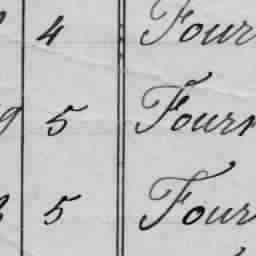 4 Four
9 5 Fourr
3 5 Four